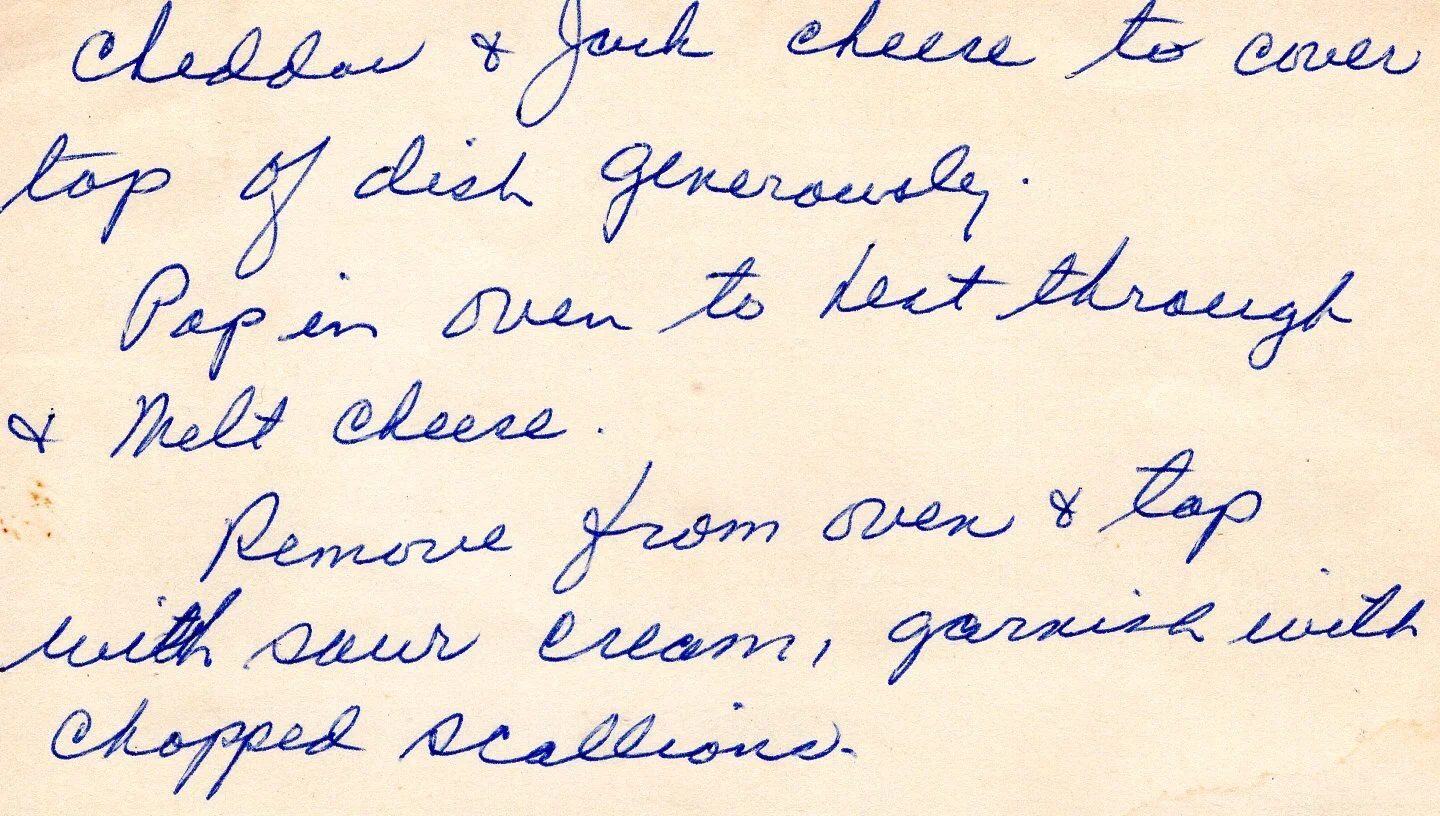 Cheddar & Jack cheese to cover
top of dish generously.
Pop in oven to heat through
& Melt cheese.
Remove from oven & top
with sour cream, garnish with
chopped scallions.